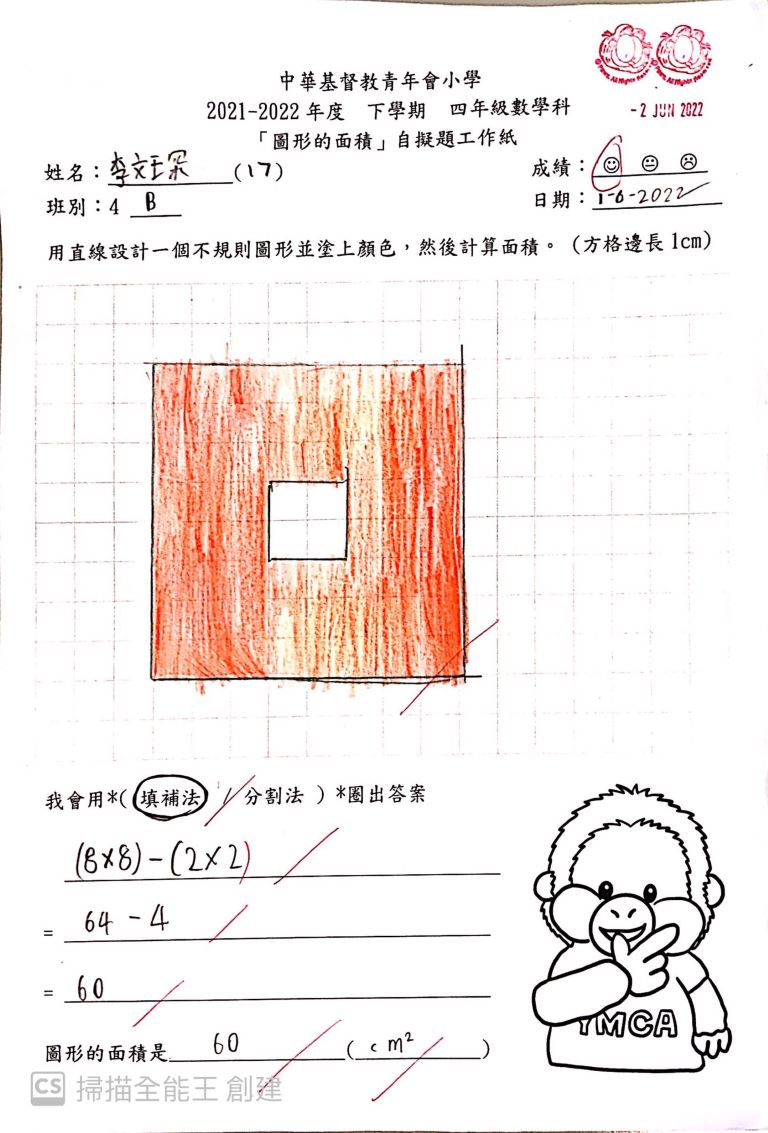 中華基督教青年會小學
2021-2022 年度 下學期 四年級數學科
-2 JUN 2022
「圖形的面積」自擬題工作紙
姓名：李文玉深 (17)
成績：
班別：4 B
日期：1-6-2022
用直線設計一個不規則圖形並塗上顏色，然後計算面積。(方格邊長 1cm)
我會用*( 填補法 / 分割法 ) *圈出答案
(8×8)-(2×2)
= 64 - 4
= 60
圖形的面積是 60 ( cm² )
YMCA
CS 掃描全能王 創建